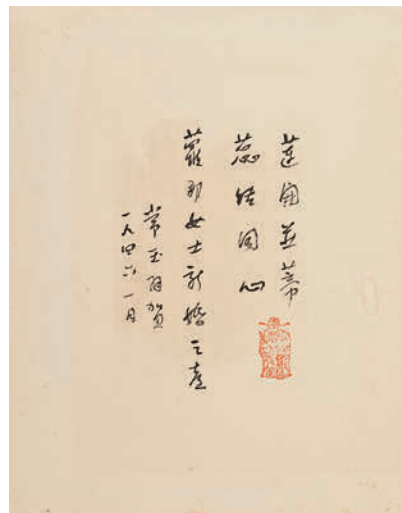 蓮開並蒂
蕊結同心
蘿那女士新婚之喜
常玉拜賀
一九四六 一月